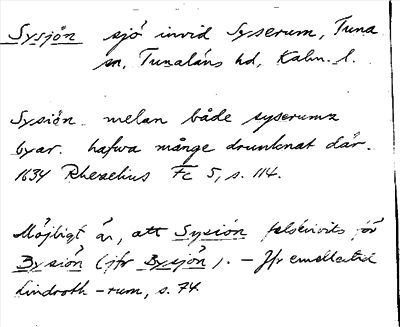 Sysjön sjö invid Syserum, Tuna
sn, Tunaläns hd, Kalm. l.
Sysiön melan både syserumz
byar. hafwa månge drunknat där.
1634 Rhezelius Fc 5, s. 114.
Möjligt är, att Sysiön felskrivits för
Bysiön (jfr Bysjön). – Jfr emellertid
Lindroth -rum, s. 74